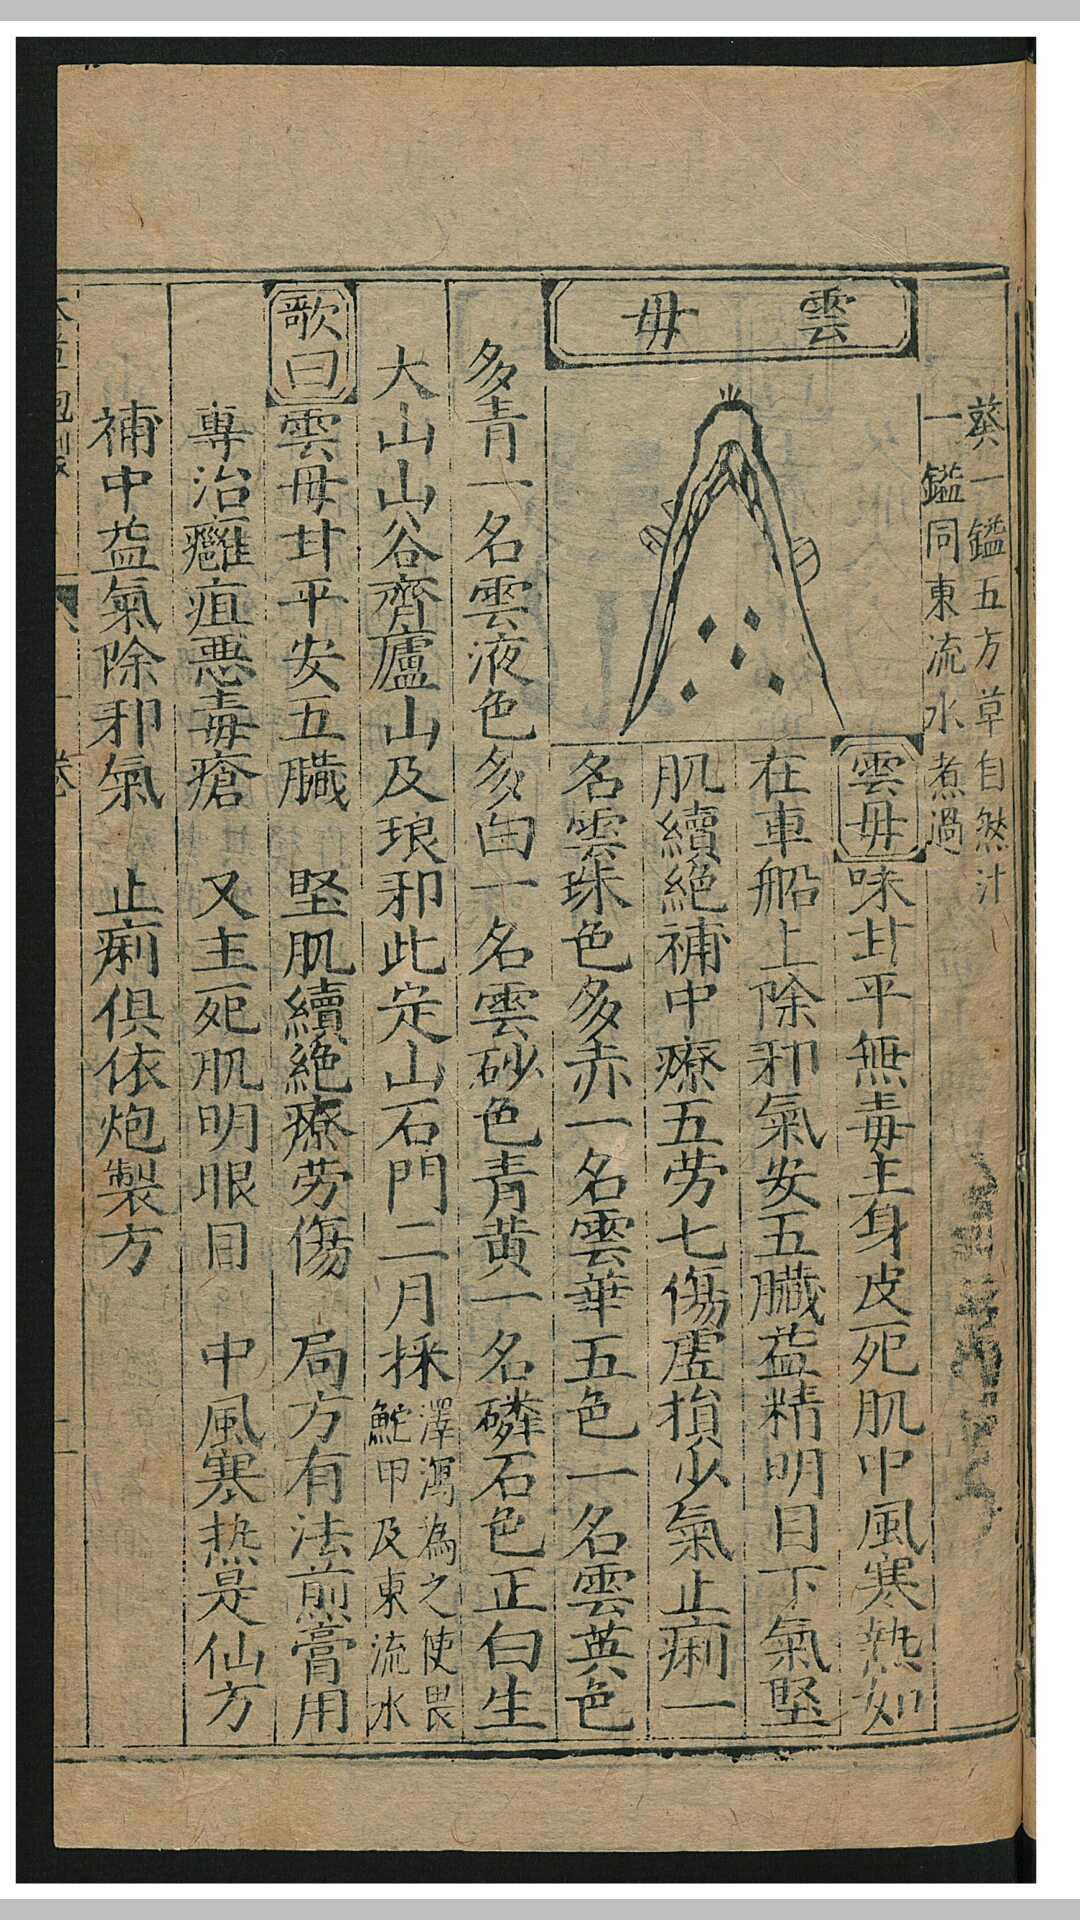 葵一鎰五方草自然汁
一鎰同東流水煮過
雲母
雲毋味甘平無毒主身皮死肌中風寒熱如
在車船上除邪氣安五臟益精明目下氣堅
肌續絕補中療五劳七傷虛損少氣止痢一
名雲珠色多赤一名雲華五色一名雲英色
多青一名雲液色多白一名雲砂色青黄一名磷石色正白生
大山山谷齊廬山及琅邪此定山石門二月採
澤瀉為之使畏
鮀甲及東流水
歌曰
雲毋甘平安五臟 堅肌續絕療劳傷 局方有法煎膏用
專治癰疽悪毒瘡 又主死肌明眼目 中風寒热是仙方
補中益氣除邪氣 止痢俱依炮製方